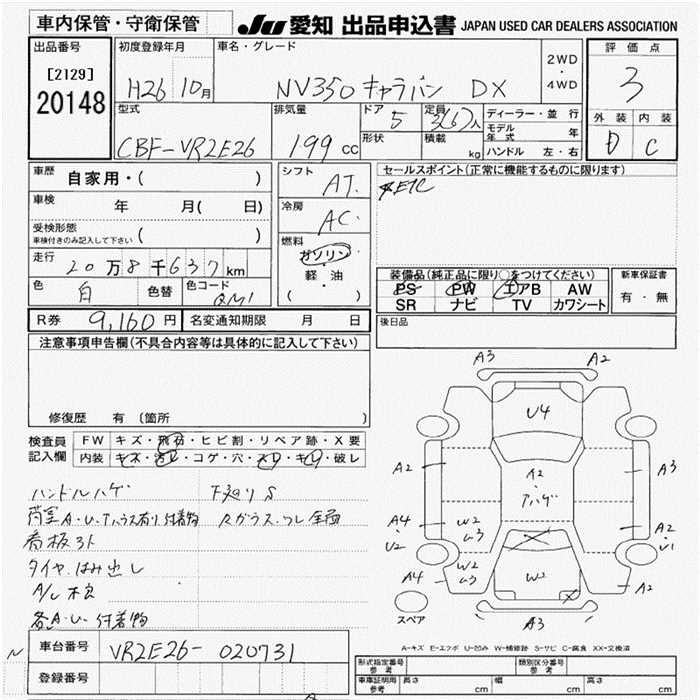 車内保管・守衛保管
JU 愛知 出品申込書 JAPAN USED CAR DEALERS ASSOCIATION
出品番号
[2129]
20148
初度登録年月
H26 10月
車名・グレード
NV350 キャラバン DX
2WD
・
4WD
評価点
3
型式
CBF-VR2E26
排気量
199 cc
ドア
5
定員
3(6)人
形状
積載
kg
ディーラー・並行
モデル年式 年
ハンドル 左・右
外装 内装
D C
車歴 自家用・( )
車検 年 月( 日)
受検形態
車検付きのみ記入して下さい ( )
走行 20万8千637km
色 白 色替 色コード QM1
シフト AT
冷房 AC
燃料
ガソリン
軽・油
( )
セールスポイント(正常に機能するものに限ります)
ETC
装備品(純正品に限り○をつけてください)
PS PW エアB AW
SR ナビ TV カワシート
新車保証書
有・無
R券 9,160円 名変通知期限 月 日
後日品
注意事項申告欄(不具合内容等は具体的に記入して下さい)
修復歴 有(箇所 )
検査員
記入欄
FW キズ・飛石・ヒビ割・リペア跡・X要
内装 キズ・汚レ・コゲ・穴・スレ・キレ・破レ
ハンドルハゲ 下廻りS
荷室A・U・ 付着物 Rガラス・ワレ 全面
看板ヌト
タイヤ・はみ出し
A/C 不良
各A・U・付着物
A3 A2
U4
A2
・
アハゲ
A2 A3
A4 W2 A2
・ ム3 ・
U2 U1
A4 W2 W2 A2
ム3
A3
スペア
A-キズ E-エクボ U-凹み W-補修跡 S-サビ C-腐食 XX-交換済
N
車台番号 VR2E26-020731
登録番号
形式指定番号
参考
類別区分番号
参考
車庫証明用
参考
長さ cm 幅 cm 高さ cm